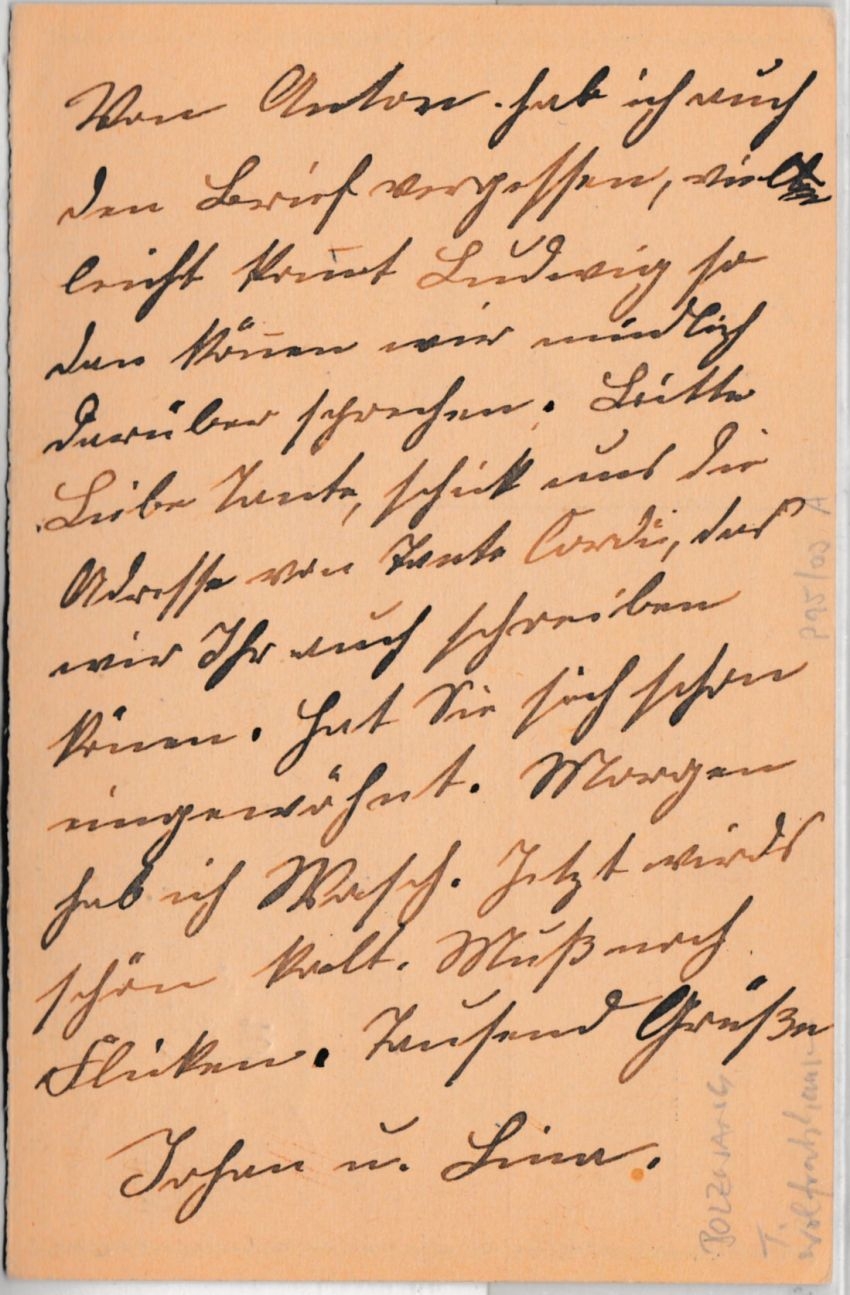 Von Anton hab ich auch
den Brief vergessen, viel
leicht kom̅t Ludwig so
dan kön̅en wir mündlich
darüber sprechen. Bitte
Liebe Tante, schick uns die
Adresse von Tante Cordi, das
wir Ihr auch schreiben
könen. Hat Sie sich schon
eingewöhnt. Morgen
hab ich Wasch. Jetzt wirds
schön kalt. Muß noch
Flicken. Tausend Grüße
Johan u. Lina.
P95/03 A
POLZWANG
T.